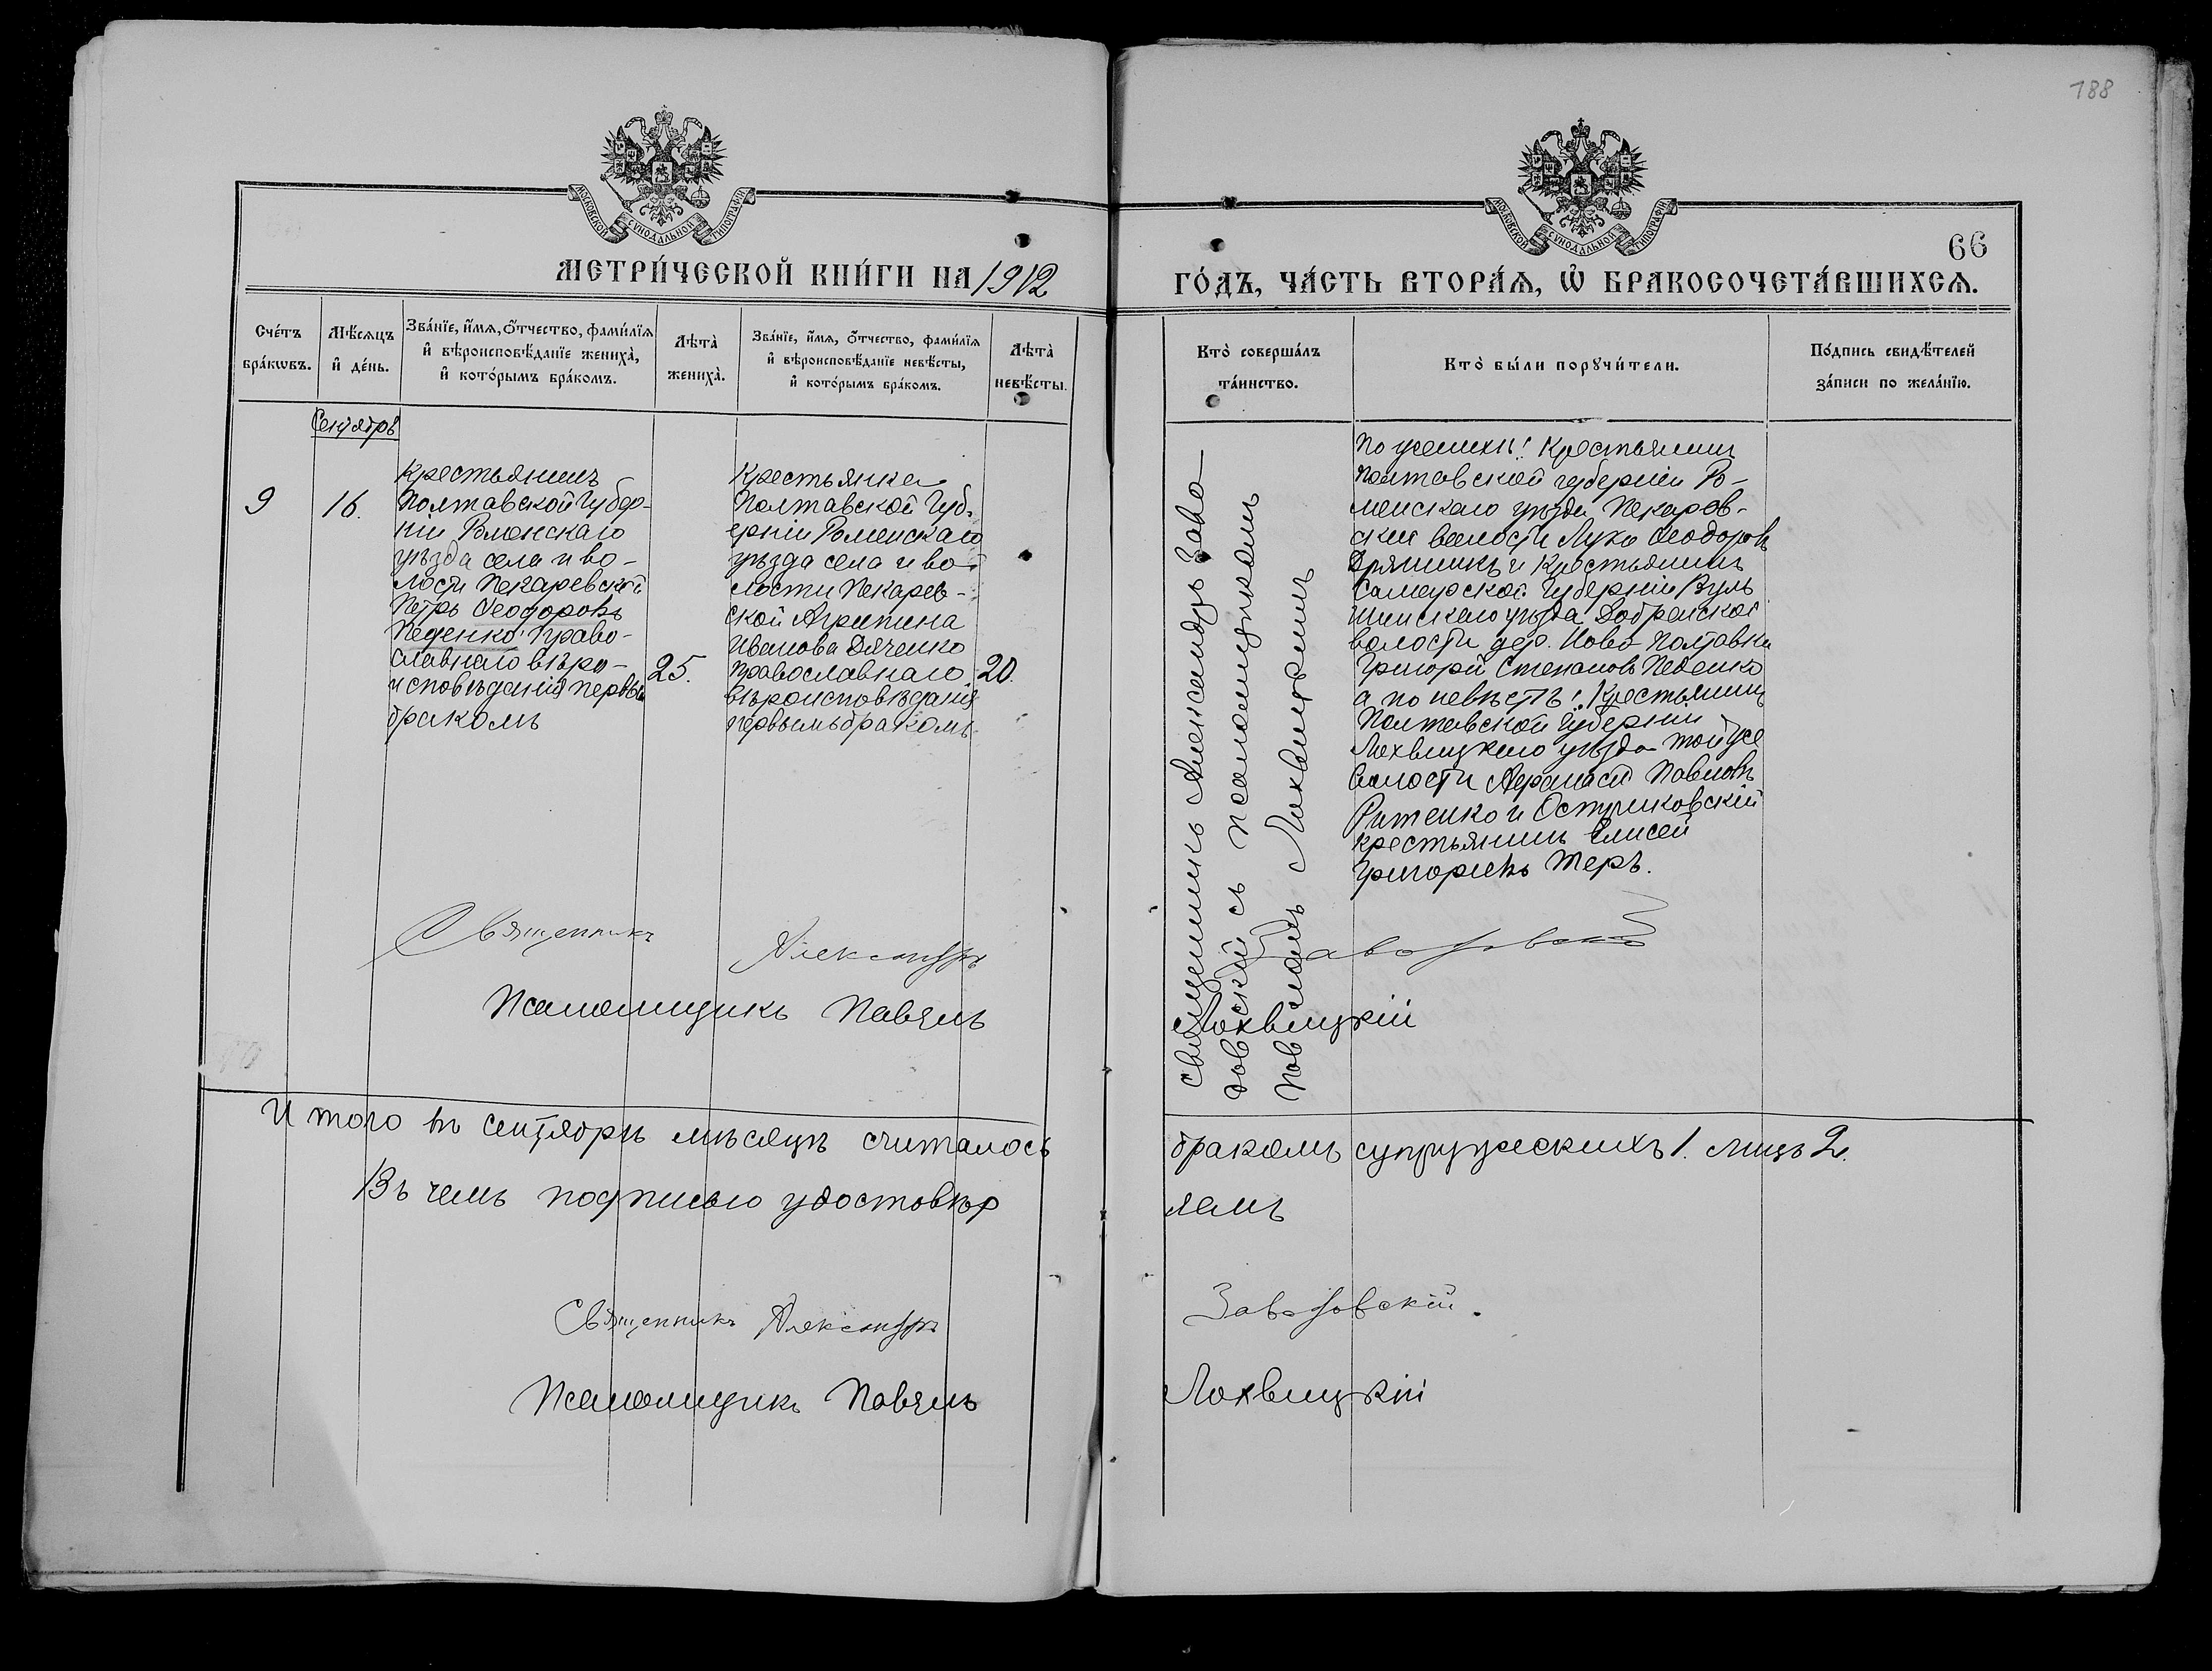 188
МОСКОВСКОЙ СѴНОДАЛЬНОЙ ТИПОГРАФІИ
МОСКОВСКОЙ СѴНОДАЛЬНОЙ ТИПОГРАФІИ
66
МЕТРИ́ЧЕСКОЙ КНИ́ГИ НА 1912
ГО́ДЪ, ЧА́СТЬ ВТОРА́Ѧ, Ѡ҆ БРАКОСОЧЕТА́ВШИХСѦ.
Сче́тъ
бра́кѡвъ.
Мѣ́сѧцъ
и҆ де́нь.
Зва́нїе, и҆́мѧ, ѻ҆́тчество, фами́лїѧ
и҆ вѣроисповѣ́данїе жениха̀,
и҆ кото́рымъ бра́комъ.
Лѣта̀
жениха̀.
Зва́нїе, и҆́мѧ, ѻ҆́тчество, фами́лїѧ
и҆ вѣроисповѣ́данїе невѣ́сты,
и҆ кото́рымъ бра́комъ.
Лѣта̀
невѣ́сты.
Кто̀ соверша́лъ
та́инство.
Кто̀ бы́ли порꙋчи́тели.
По́дпись свидѣ́телей
за́писи по жела́нїю.
Сентябрь
9
16.
Крестьянинъ
Полтавской Губер-
ніи Роменскаго
уѣзда села и во-
лости Пекаревской
Петръ Ѳеодоровъ
Педенко, право-
славнаго вѣро-
исповѣданія первым
бракомъ
25.
Крестьянка
Полтавской Губ-
ерніи Роменскаго
уѣзда села и во-
лости Пекарев-
ской Агрипина
Иванова Дяченко
православнаго
вѣроисповѣданія
первымъ бракомъ.
20.
Священникъ Александръ Заво-
довскій съ псаломщикомъ
Павломъ Лохвицкимъ
По женихѣ: Крестьянин
Полтавской губерніи Ро-
менскаго уѣзда Пекарев-
ской волости Лука Ѳеодоровъ
и Крестьянинъ
Самарской Губерніи
уѣзда
волости дер. Ново-Полтавки
Григорій Степановъ Педенко
а по невѣстѣ: Крестьянинъ
Полтавской Губерніи
Лохвицкаго уѣзда той же
волости Афанасій Павловъ
и
крестьянинъ Елисей
Григорьевъ
Священникъ Александръ Заводовскій
Псаломщикъ Павелъ Лохвицкій
Итого въ сентябрѣ мѣсяцѣ считалось бракомъ супружескихъ 1. лицъ 2.
Въ чемъ подписью удостовѣряемъ
Священникъ Александръ Заводовскій.
Псаломщикъ Павелъ Лохвицкій